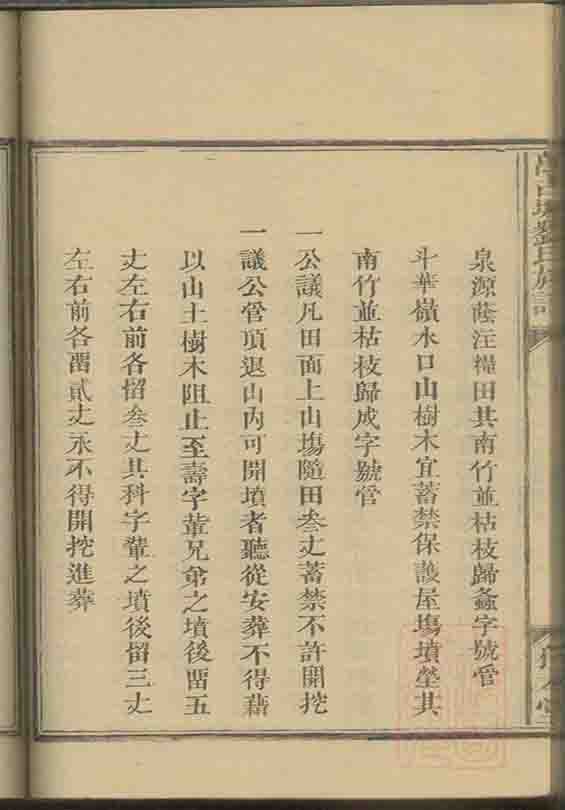 劉氏族譜
泉源蔭注糧田其南竹並枯枝歸螽字號管
斗華嶺水口山樹木宜蓄禁保護屋塲墳塋其
南竹並枯枝歸成字號管
一公議凡田面上山塲隨田叁丈蓄禁不許開挖
一議公管項退山內可開墳者聽從安葬不得藉
以山土樹木阻止至壽字輩兄弟之墳後畱五
丈左右前各留叁丈其科字輩之墳後留三丈
左右前各畱貳丈永不得開挖進葬